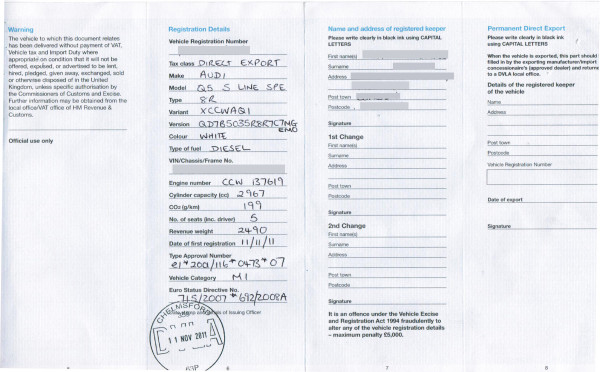 Warning
The vehicle to which this document relates
has been delivered without payment of VAT,
Vehicle tax and Import Duty where
appropriate on condition that it will not be
offered, exposed, or advertised to be lent,
hired, pledged, given away, exchanged, sold
or otherwise disposed of in the United
Kingdom, unless specific authorisation by
the Commissioners of Customs and Excise.
Further information may be obtained from the
local office/VAT office of HM Revenue &
Customs.
Official use only
Registration Details
Vehicle Registration Number
Tax class DIRECT EXPORT
Make AUDI
Model Q5 S LINE SPE
Type 8R
Variant XCCWAQ1
Version QD7B5035R8R7C7MG
EM0
Colour WHITE
Type of fuel DIESEL
VIN/Chassis/Frame No.
Engine number CCW 137619
Cylinder capacity (cc) 2967
CO2 (g/km) 199
No. of seats (inc. driver) 5
Revenue weight 2490
Date of first registration 11/11/11
Type Approval Number
e1*2001/116*0473*07
Vehicle Category M1
Euro Status Directive No.
715/2007*692/2008A
of Issuing Officer
CHELMSFORD
11 NOV 2011
6
Name and address of registered keeper
Please write clearly in black ink using CAPITAL
LETTERS
First name(s)
Surname
Address
Post town
Postcode
Signature
1st Change
First name(s)
Surname
Address
Post town
Postcode
Signature
2nd Change
First name(s)
Surname
Address
Post town
Postcode
Signature
It is an offence under the Vehicle Excise
and Registration Act 1994 fraudulently to
alter any of the vehicle registration details
– maximum penalty £5,000.
7
Permanent Direct Export
Please write clearly in black ink
using CAPITAL LETTERS
When the vehicle is exported, this part should
filled in by the exporting manufacturer/import
concessionaire's (approved dealer) and returned
to a DVLA local office.
Details of the registered keeper
of the vehicle
Name
Address
Post town
Postcode
Vehicle Registration Number
Date of export
Signature
8